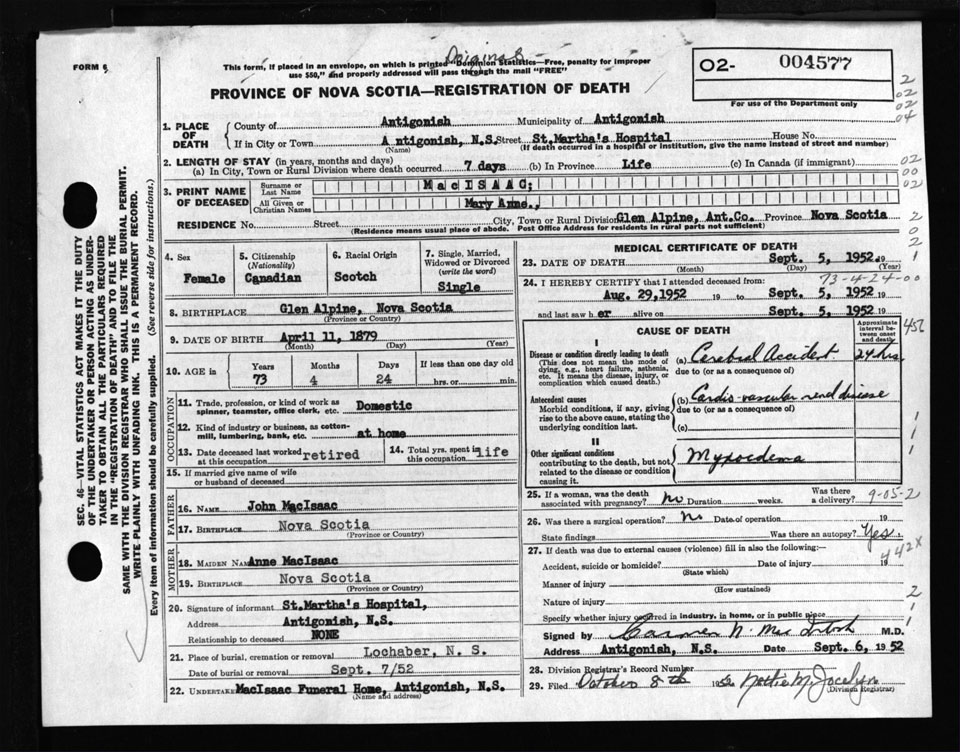 Original
FORM 6
This form, if placed in an envelope, on which is printed "Dominion Statistics—Free, penalty for improper
use $50," and properly addressed will pass through the mail "FREE"
PROVINCE OF NOVA SCOTIA—REGISTRATION OF DEATH
O2- 004577
For use of the Department only
2
02
02
04
1. PLACE OF DEATH
County of Antigonish Municipality of Antigonish
If in City or Town Antigonish, N.S. Street St.Martha's Hospital House No.
(Name) (If death occurred in a hospital or institution, give the name instead of street and number)
2. LENGTH OF STAY (in years, months and days)
(a) In City, Town or Rural Division where death occurred 7 days (b) In Province Life (c) In Canada (if immigrant)
02
00
02
3. PRINT NAME OF DECEASED
Surname or Last Name MacISAAC;
All Given or Christian Names Mary Anne.,
RESIDENCE No. Street City, Town or Rural Division Glen Alpine, Ant.Co. Province Nova Scotia
(Residence means usual place of abode. Post Office Address for residents in rural parts not sufficient)
2
0
2
1
4. Sex
Female
5. Citizenship
(Nationality)
Canadian
6. Racial Origin
Scotch
7. Single, Married,
Widowed or Divorced
(write the word)
Single
8. BIRTHPLACE Glen Alpine, Nova Scotia
(Province or Country)
9. DATE OF BIRTH April 11, 1879
(Month) (Day) (Year)
10. AGE in
Years Months Days If less than one day old
73 4 24 hrs. or min.
OCCUPATION
11. Trade, profession, or kind of work as
spinner, teamster, office clerk, etc. Domestic
12. Kind of industry or business, as cotton-
mill, lumbering, bank, etc. at home
13. Date deceased last worked
at this occupation retired
14. Total yrs. spent in
this occupation life
15. If married give name of wife
or husband of deceased
FATHER
16. NAME John MacIsaac
17. BIRTHPLACE Nova Scotia
(Province or Country)
MOTHER
18. MAIDEN NAME Anne MacIsaac
19. BIRTHPLACE Nova Scotia
(Province or Country)
20. Signature of informant St.Martha's Hospital,
Address Antigonish, N.S.
Relationship to deceased NONE
21. Place of burial, cremation or removal Lochaber, N. S.
Date of burial or removal Sept. 7/52
22. UNDERTAKER MacIsaac Funeral Home, Antigonish, N.S.
(Name and address)
MEDICAL CERTIFICATE OF DEATH
23. DATE OF DEATH Sept. 5, 1952. 19
(Month) (Day) (Year)
73-4-24-00
24. I HEREBY CERTIFY that I attended deceased from:
Aug. 29,1952 19 to Sept. 5, 1952 19
and last saw her alive on Sept. 5, 1952 19
CAUSE OF DEATH
Approximate
interval between
onset
and death
I
Disease or condition directly leading to death
(This does not mean the mode of
dying, e.g., heart failure, asthenia,
etc. It means the disease, injury, or
complication which caused death.)
(a) Cerebral Accident 24 hrs
due to (or as a consequence of)
Antecedent causes
Morbid conditions, if any, giving
rise to the above cause, stating the
underlying condition last.
(b) Cardio-vascular renal disease
due to (or as a consequence of)
(c)
II
Other significant conditions
contributing to the death, but not
related to the disease or condition
causing it.
Myxoedema
1
1
1
25. If a woman, was the death
associated with pregnancy? No Duration weeks. Was there
a delivery?
9-05-2
26. Was there a surgical operation? No Date of operation 19
State findings Was there an autopsy? Yes
442X
27. If death was due to external causes (violence) fill in also the following:—
Accident, suicide or homicide? Date of injury 19
(State which)
Manner of injury
(How sustained)
Nature of injury
Specify whether injury occurred in industry, in home, or in public place
2
1
1
Signed by M.D.
Address Antigonish, N.S. Date Sept. 6, 1952
28. Division Registrar's Record Number
29. Filed October 8th 1952 Nettie M. Jocelyn
(Division Registrar)
SEC. 46—VITAL STATISTICS ACT MAKES IT THE DUTY
OF THE UNDERTAKER OR PERSON ACTING AS UNDER-
TAKER TO OBTAIN ALL THE PARTICULARS REQUIRED
IN THE "REGISTRATION OF DEATH" AND TO FILE THE
SAME WITH THE DIVISION REGISTRAR WHO SHALL ISSUE THE BURIAL PERMIT.
WRITE PLAINLY WITH UNFADING INK. THIS IS A PERMANENT RECORD.
Every item of information should be carefully supplied. (See reverse side for instructions.)